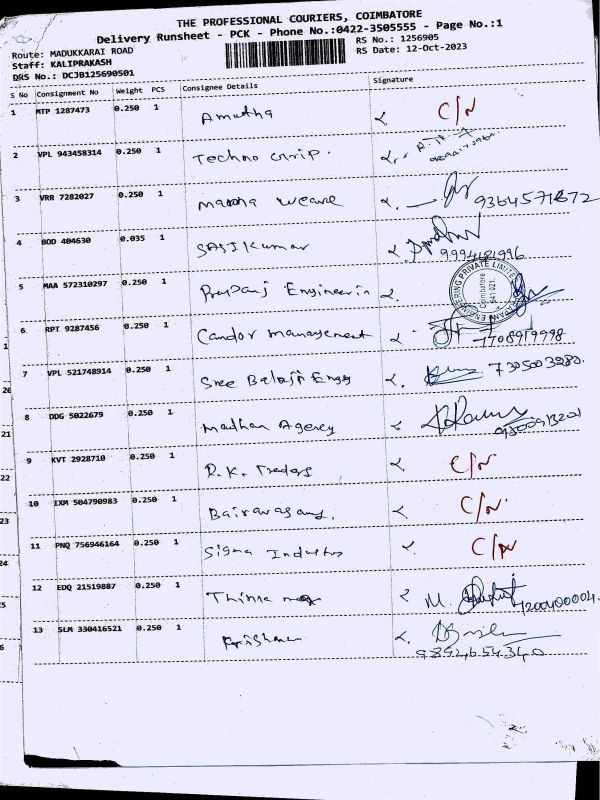 THE PROFESSIONAL COURIERS, COIMBATORE
Delivery Runsheet - PCK - Phone No.:0422-3505555 - Page No.:1
Route: MADUKKARAI ROAD RS No.: 1256905
Staff: KALIPRAKASH RS Date: 12-Oct-2023
DRS No.: DCJB125690501
S No Consignment No Weight PCS Consignee Details Signature
1 MTP 1287473 0.250 1 Amutha C/N
2 VPL 943458314 0.250 1 Techno
3 VRR 7282027 0.250 1 weave 9364571872
4 BOD 404630 0.035 1 SASIKumar 9994181996
5 MAA 572310297 0.250 1 Engineerin
ENGINEERING PRIVATE LIMITED
Coimbatore
641 021.
6 RPT 9287456 0.250 1 Candor management
7 VPL 521748914 0.250 1 Sree Balaji Engg 7305003280.
8 DDG 5022679 0.250 1 Madhan Agency
9 KVT 2928710 0.250 1 R.K. Traders C/N
10 IXM 504790983 0.250 1 C/N
11 PNQ 756946164 0.250 1 Sigma C/N
12 EDQ 21519887 0.250 1 M.
13 SLM 330416521 0.250 1 9892654340